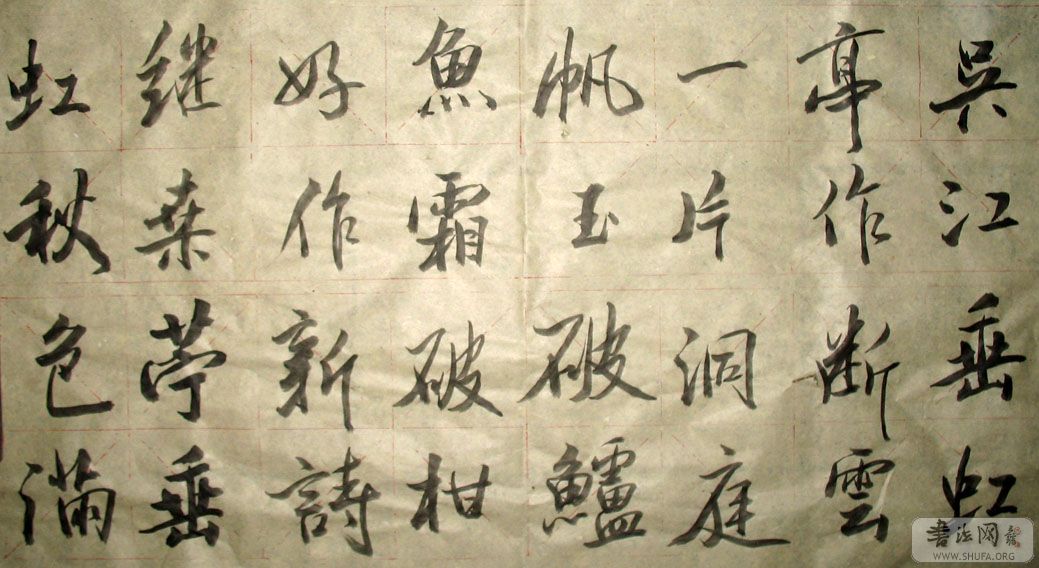 吳江垂虹
亭作断雲
一片洞庭
帆玉破鱸
魚霜破柑
好作新詩
继桑苧垂
虹秋色满
書法网
WWW.SHUFA.ORG